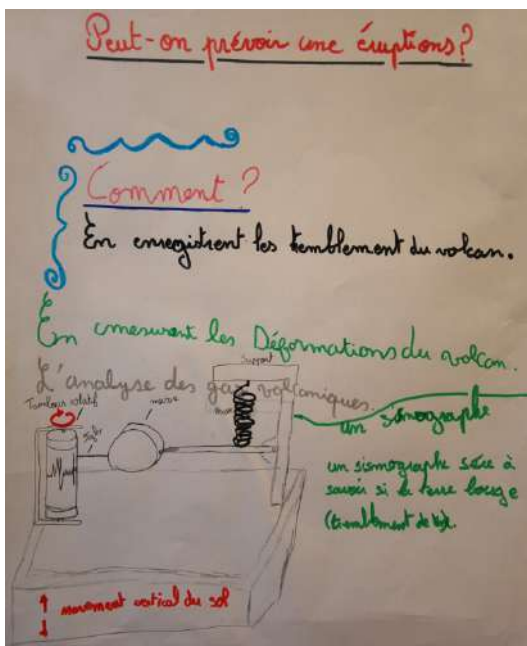 Peut-on prévoir une éruptions?
Comment ?
En enregistrent les temblement du volcan.
En mesurant les Déformations du volcan.
L'analyse des gaz volcaniques.
Support
Tambour rotatif
masse
un sismographe
un sismographe sère à
savoir si la terre bouge
(tremblement de
mouvement vertical du sol